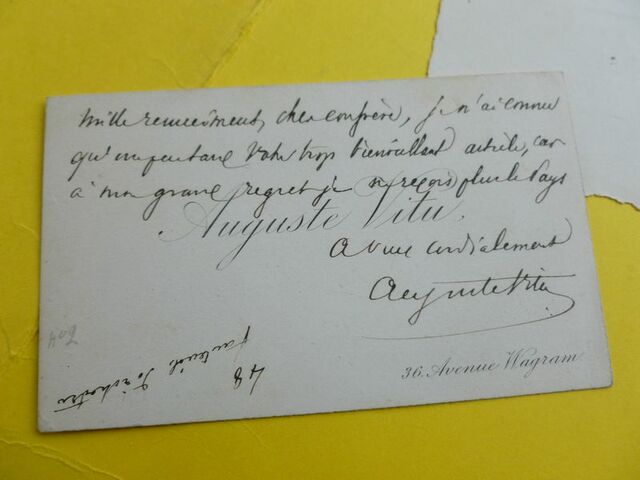 Mille remerciments, cher confrère, je n'ai connu
qu'un peu tard votre trop bienveillant article, car
à mon grand regret je ne reçois plus le Pays
Auguste Vitu,
à vous cordialement
Auguste Vitu
36. Avenue Wagram
48
fauteuil